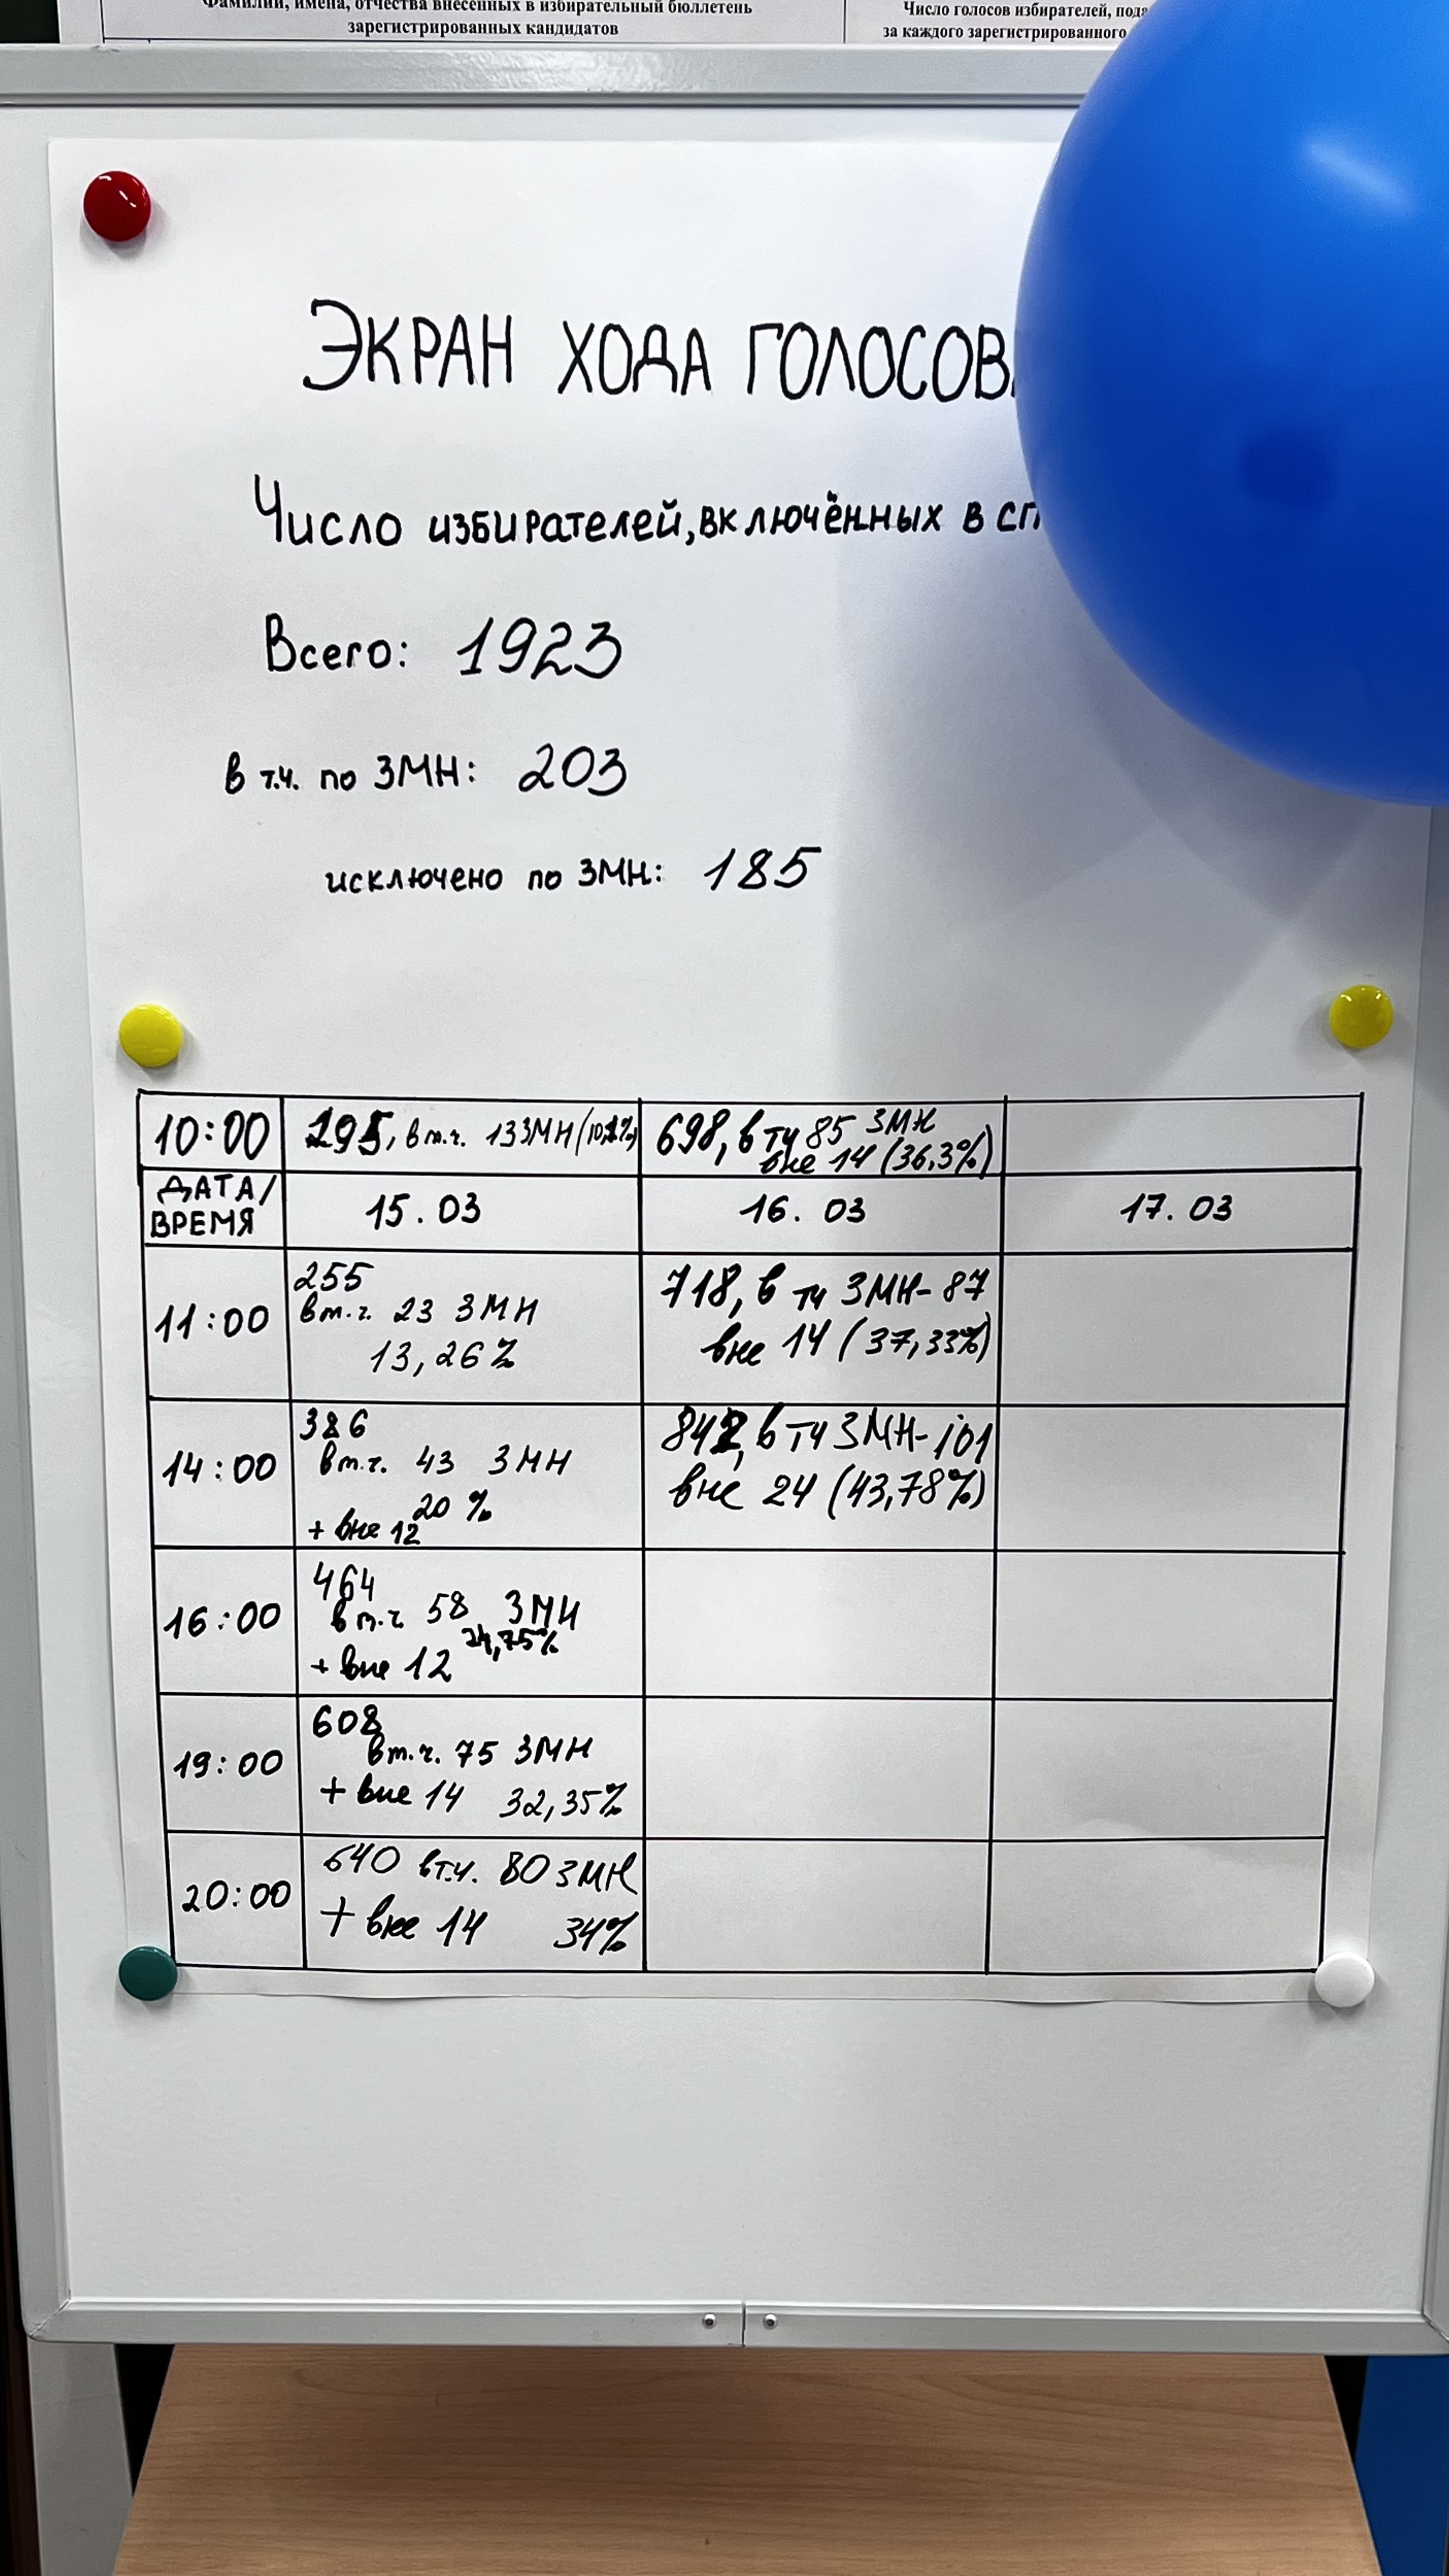 Фамилии, имена, отчества внесенных в избирательный бюллетень
зарегистрированных кандидатов
Число голосов избирателей,
за каждого зарегистрированного
ЭКРАН ХОДА
Число избирателей, включённых в
Всего: 1923
в т.ч. по ЗМН: 203
исключено по ЗМН: 185
10:00
195, в т.ч. 13 ЗМН
698, в тч 85 ЗМН
вне 14 (36,3%)
ДАТА/
ВРЕМЯ
15.03
16.03
17.03
11:00
255
в т.ч. 23 ЗМН
13,26%
718, в тч ЗМН-87
вне 14 (37,33%)
14:00
386
в т.ч. 43 ЗМН
20 %
+ вне 12
842, в тч ЗМН-101
вне 24 (43,78%)
16:00
464
в т.ч 58 ЗМН
24,75%
+ вне 12
19:00
608
в т.ч. 75 ЗМН
+ вне 14 32,35%
20:00
640 в т.ч. 80 ЗМН
+ вне 14 34%